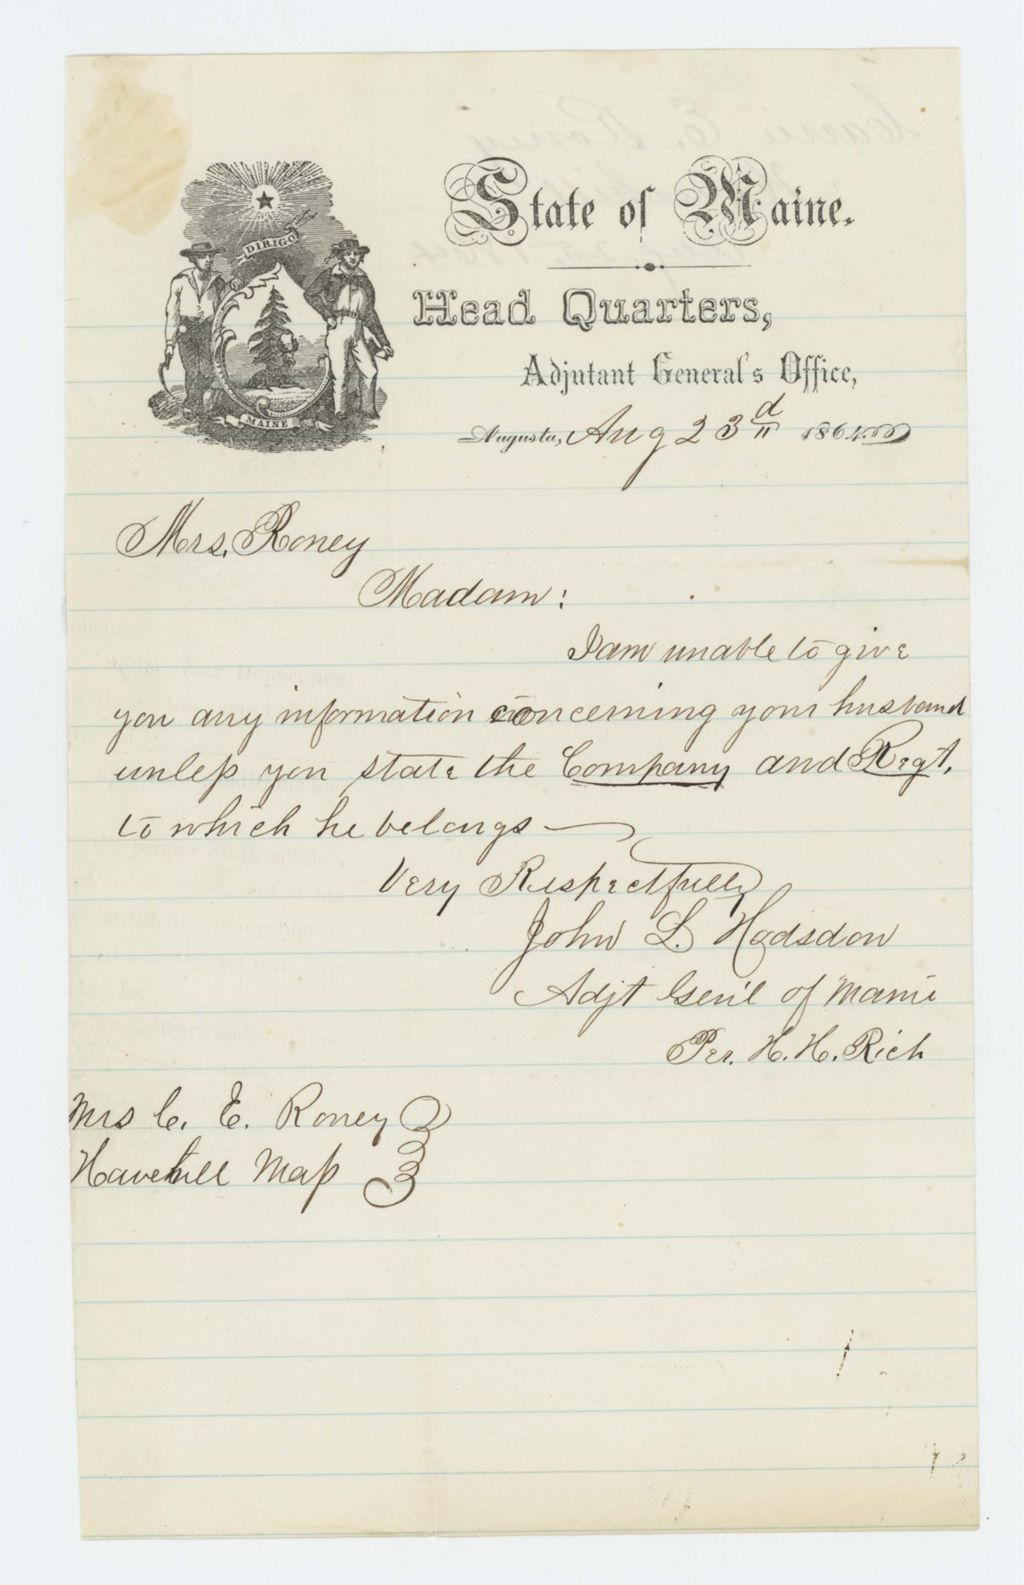 DIRIGO
MAINE
State of Maine.
Head Quarters,
Adjutant General's Office,
Augusta, Aug 23d 1864
Mrs. Roney
Madam:
I am unable to give
you any information concerning your husband
unless you state the Company and Regt.
to which he belongs
Very Respectfully
John L. Hodsdon
Adjt Gen'l of Maine
Per. H. H. Rich
Mrs C. E. Roney
Havehill Mass